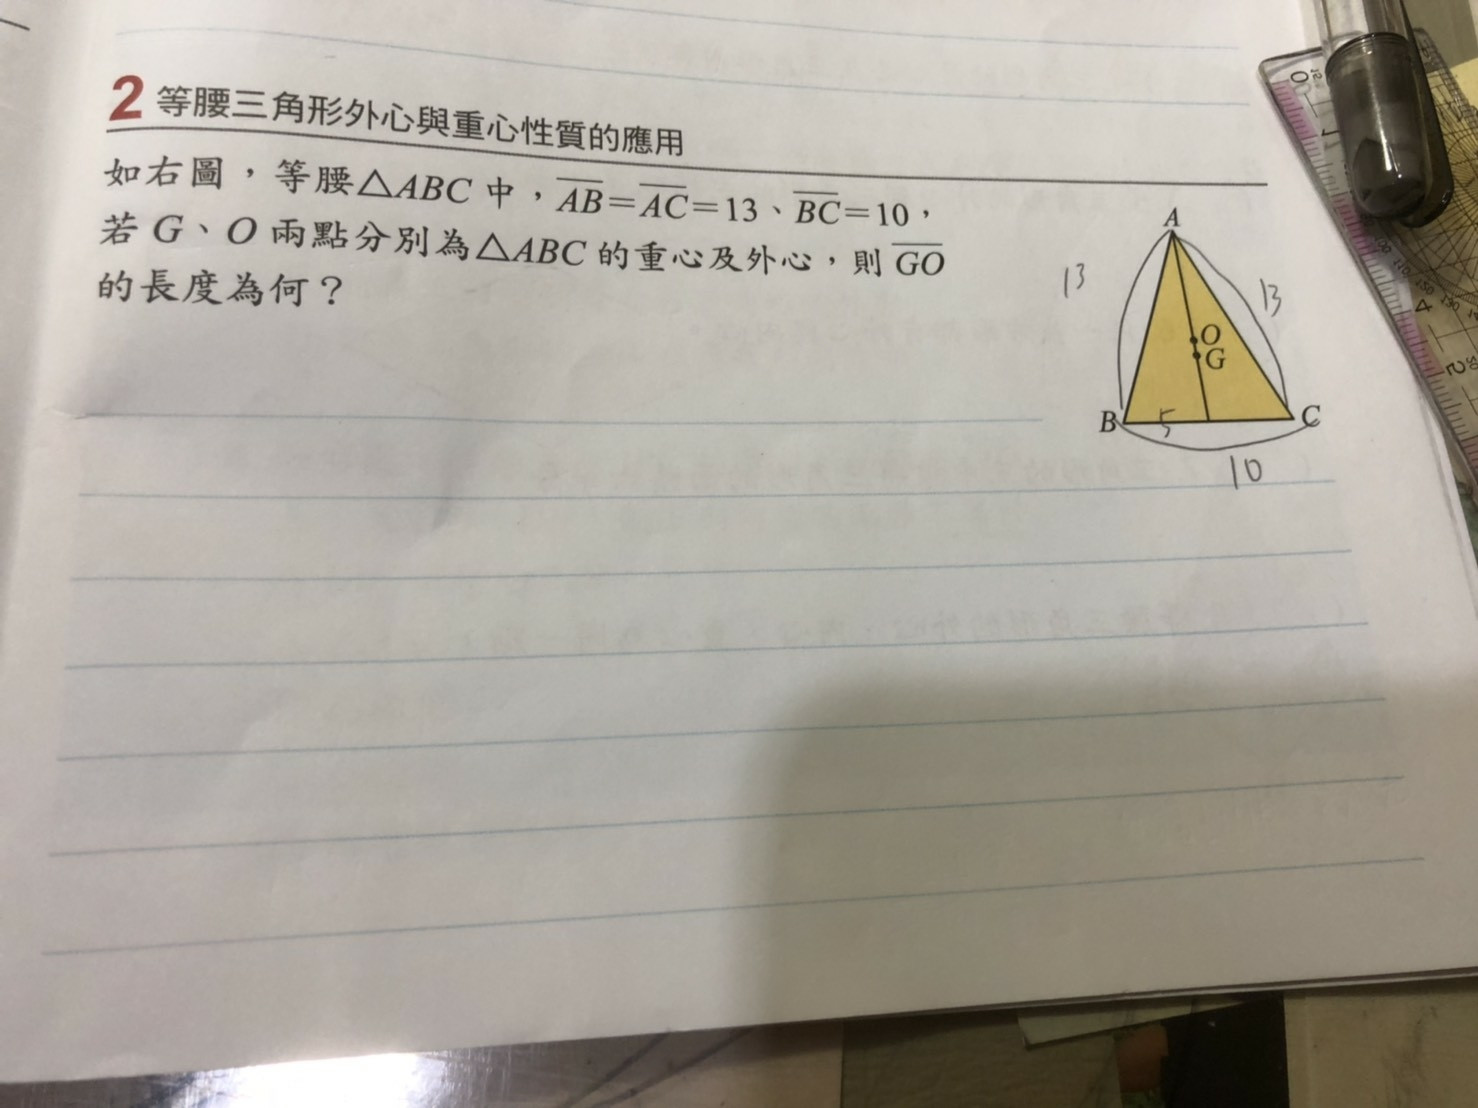 2 等腰三角形外心與重心性質的應用
如右圖，等腰△ABC 中，AB=AC=13、BC=10，
若 G、O 兩點分別為△ABC 的重心及外心，則 GO
的長度為何？
A
13
13
O
G
B
5
C
10